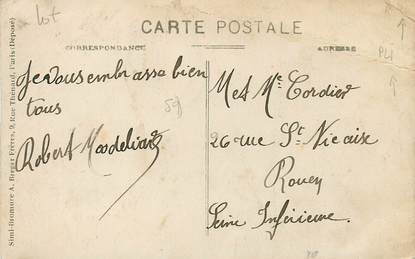 lot
CARTE POSTALE
CORRESPONDANCE
ADRESSE
PLI
Je vous embrasse bien
tous
Robert
59
M et Me Cordier
26 rue St Nicaise
Rouen
Seine Inférieure.
Simi-Bromure A. Breger Frères, 9, Rue Thénard, Paris (Déposé)